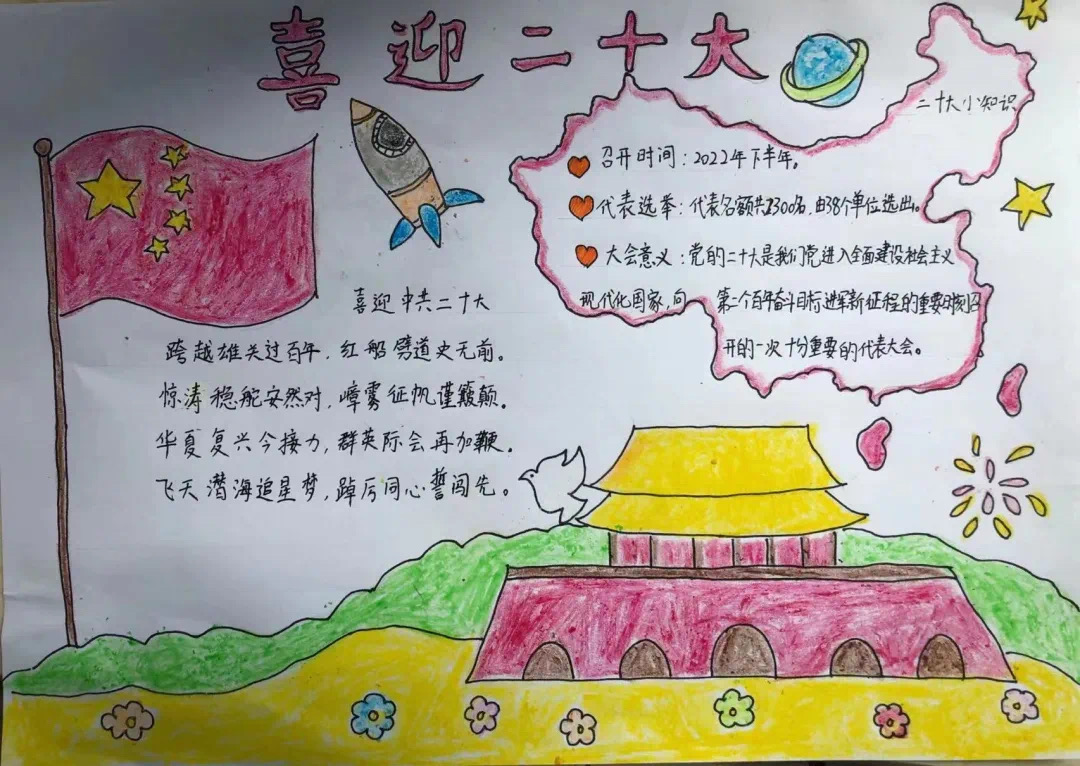 喜迎二十大
二十大小知识
召开时间：2022年下半年。
代表选举：代表名额共2300名，由38个单位选出。
大会意义：党的二十大是我们党进入全面建设社会主义
现代化国家，向第二个百年奋斗目标进军新征程的重要时刻召
开的一次十分重要的代表大会。
喜迎中共二十大
跨越雄关过百年，红船劈道史无前。
惊涛稳舵安然对，嶂雾征帆谨簸颠。
华夏复兴今接力，群英际会再加鞭。
飞天潜海追星梦，踔厉同心誓闯先。